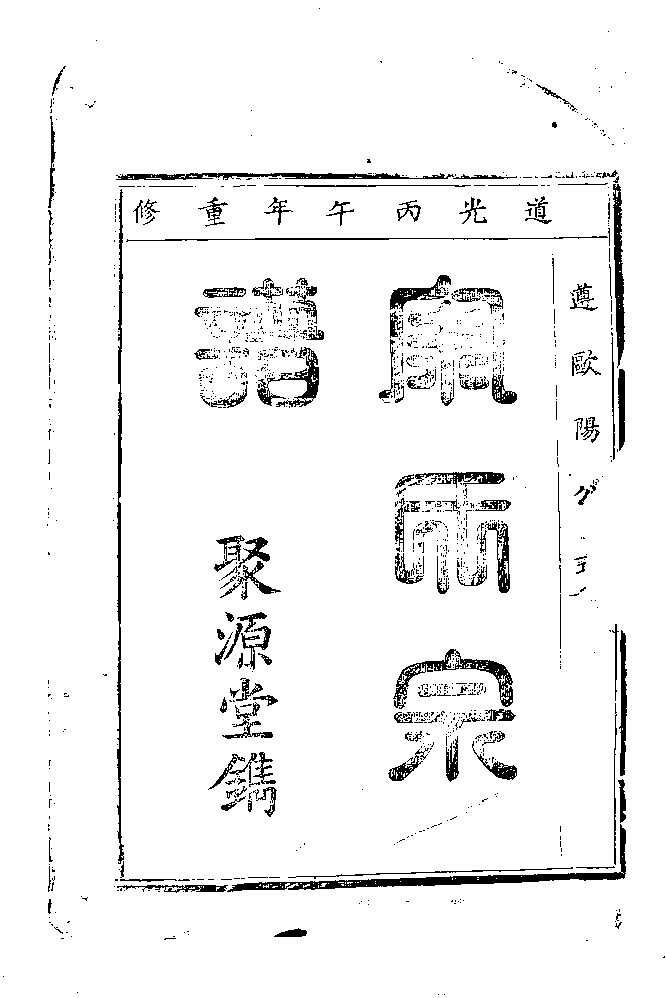 道光丙午年重修
遵歐陽公
氏宗
譜
聚源堂鐫